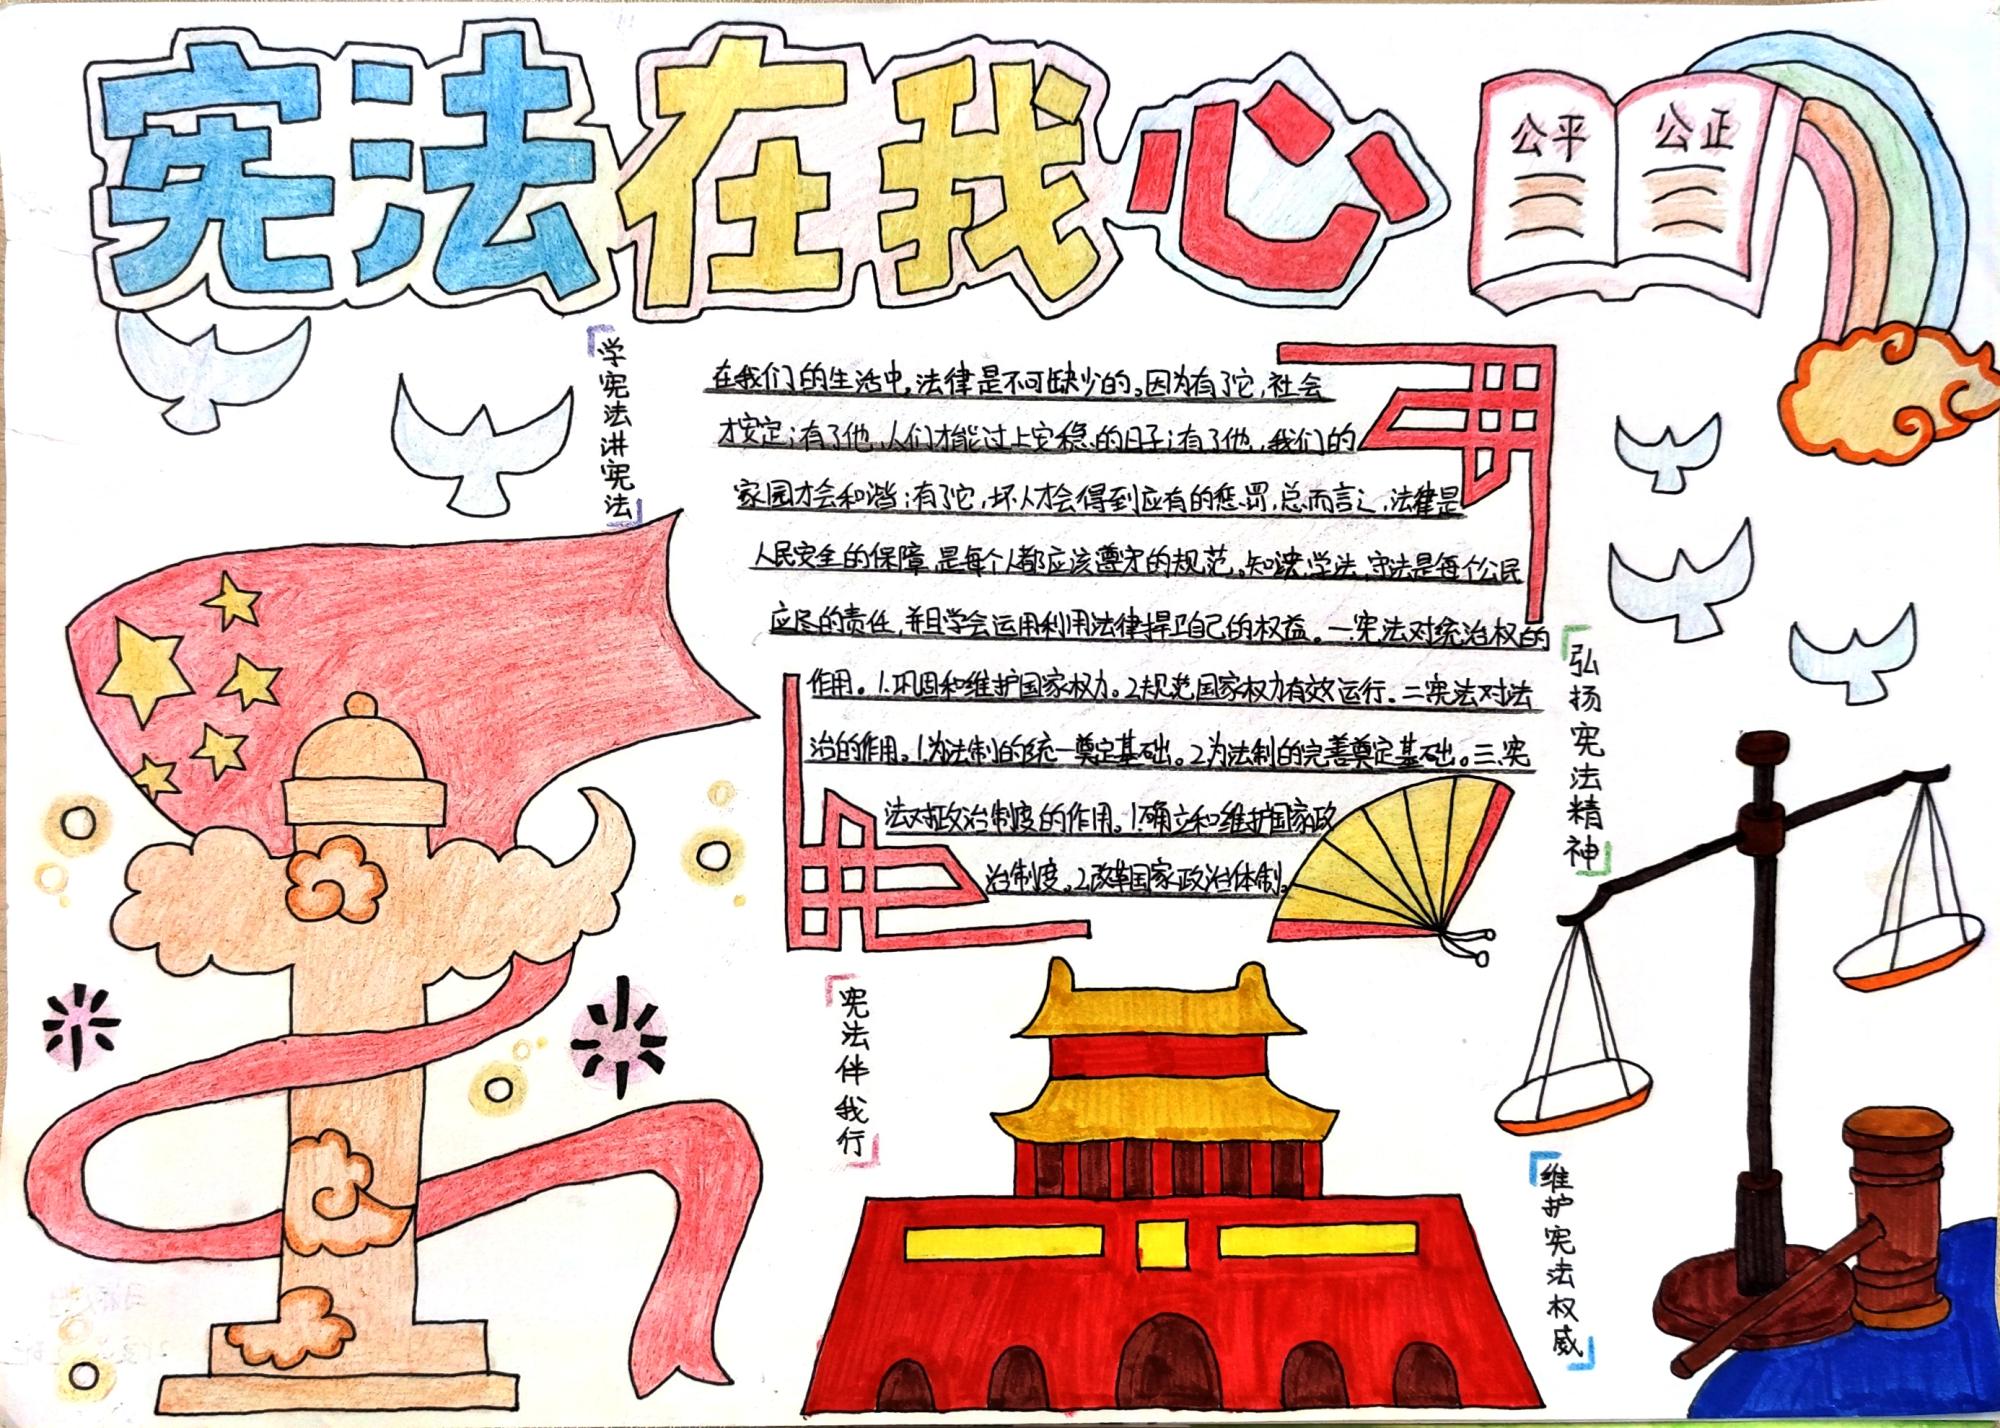 宪法在我心
公平
公正
学宪法讲宪法
在我们的生活中,法律是不可缺少的。因为有了它,社会
才安定;有了他,人们才能过上安稳的日子;有了他,我们的
家园才会和谐;有了它,坏人才会得到应有的惩罚,总而言之,法律是
人民安全的保障,是每个人都应该遵守的规范。知法,学法,守法是每个公民
应尽的责任,并且学会运用利用法律捍卫自己的权益。一.宪法对统治权的
作用。1.巩固和维护国家权力。2.规范国家权力有效运行。二宪法对法
治的作用。1.为法制的统一奠定基础。2.为法制的完善奠定基础。三.宪
法对政治制度的作用。1.确立和维护国家政
治制度。2.改革国家政治体制。
弘扬宪法精神
宪法伴我行
维护宪法权威